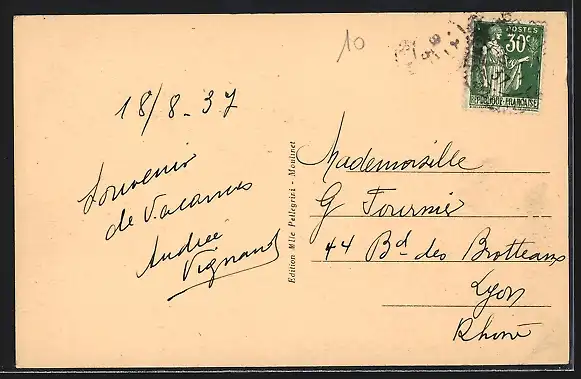 10
POSTES
30c
REPUBLIQUE FRANÇAISE
18/8-37
Souvenir
de Vacances
Andrée
Vignand
Edition Mlle Pellegrini - Moulinet
Mademoiselle
G Fournier
44 Bd des Brotteaux
Lyon
Rhône